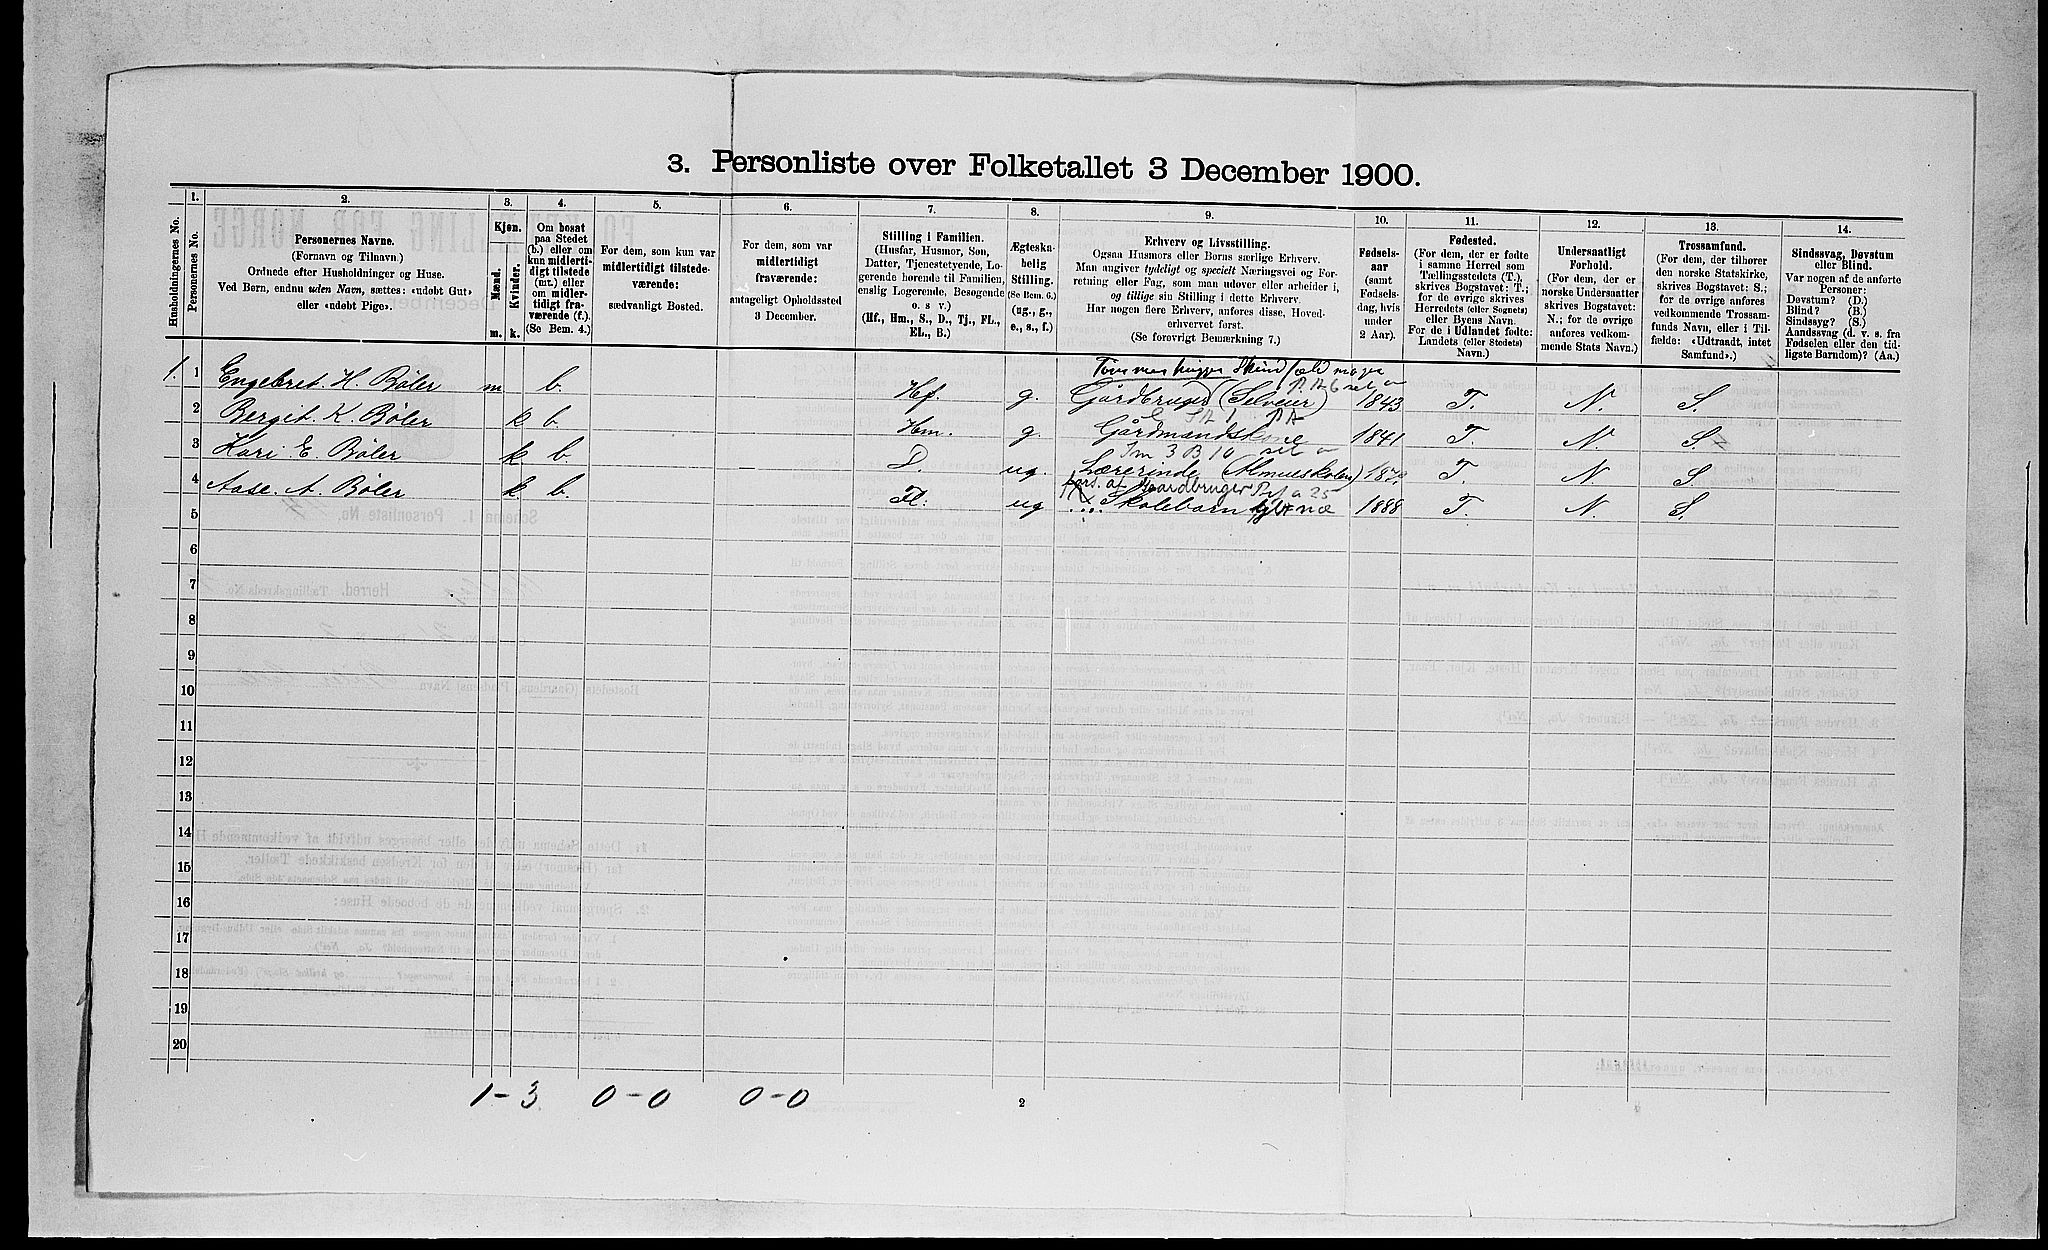 3. Personliste over Folketallet 3 December 1900.
Husholdningernes No.
1.
Personernes No.
2.
Personernes Navne.
(Fornavn og Tilnavn.)
Ordnede efter Husholdninger og Huse.
Ved Børn, endnu uden Navn, sættes: «udøbt Gut»
eller «udøbt Pige».
3.
Kjøn.
Mænd.
Kvinder.
m. k.
4.
Om bosat
paa Stedet
(b.) eller om
kun midlerti-
digt tilstede
(mt.) eller
om midler-
tidigt fra-
værende (f.)
(Se Bem. 4.)
5.
For dem, som kun var
midlertidigt tilstede-
værende:
sædvanligt Bosted.
6.
For dem, som var
midlertidigt
fraværende:
antageligt Opholdssted
3 December.
7.
Stilling i Familien.
(Husfar, Husmor, Søn,
Datter, Tjenestetyende, Lo-
gerende hørende til Familien,
enslig Logerende, Besøgende
o. s. v.)
(Hf., Hm., S., D., Tj., FL.,
EL., B.)
8.
Ægteska-
belig
Stilling.
(Se Bem. 6.)
(ug., g.,
e., s., f.)
9.
Erhverv og Livsstilling.
Ogsaa Husmors eller Børns særlige Erhverv.
Man angiver tydeligt og specielt Næringsvei og For-
retning eller Fag, som man udøver eller arbeider i,
og tillige sin Stilling i dette Erhverv.
Har nogen flere Erhverv, anføres disse, Hoved-
erhvervet først.
(Se forøvrigt Bemærkning 7.)
10.
Fødsels-
aar
(samt
Fødsels-
dag, hvis
under
2 Aar).
11.
Fødested.
(For dem, der er fødte
i samme Herred som
Tællingsstedets (T.),
skrives Bogstavet: T.;
for de øvrige skrives
Herredets (eller Sognets)
eller Byens Navn.
For de i Udlandet fødte:
Landets (eller Stedets)
Navn.)
12.
Undersaatligt
Forhold.
(For dem, der er
norske Undersaatter
skrives Bogstavet:
N.; for de øvrige
anføres vedkom-
mende Stats Navn.)
13.
Trossamfund.
(For dem, der tilhører
den norske Statskirke,
skrives Bogstavet: S.;
for de øvrige anføres
vedkommende Trossam-
funds Navn, eller i Til-
fælde: «Udtraadt, intet
Samfund».)
14.
Sindssvag, Døvstum
eller Blind.
Var nogen af de anførte
Personer:
Døvstum? (D.)
Blind? (B.)
Sindssyg? (S.)
Aandssvag (d. v. s. fra
Fødselen eller den tid-
ligste Barndom)? (Aa.)
Tømmerhugger Skindfældmager
1. 1 Engebret H. Bøler m b. Hf. g. Gårdbruger (Selveier) 1843 T. N. S.
2 Bergit K. Bøler k b. Hm. g. Gårdmandskone 1841 T. N S.
Im 3 B 10
3 Kari E. Bøler k b. D. ug. Lærerinde (Almueskolen) T. N S.
fors. af Gaardbruger
4 Aase A. Bøler k b. Fl. ug Skolebarn 1888 T. N. S.
5
6
7
8
9
10
11
12
13
14
15
16
17
18
19
20
1 - 3 0 - 0 0 - 0
2